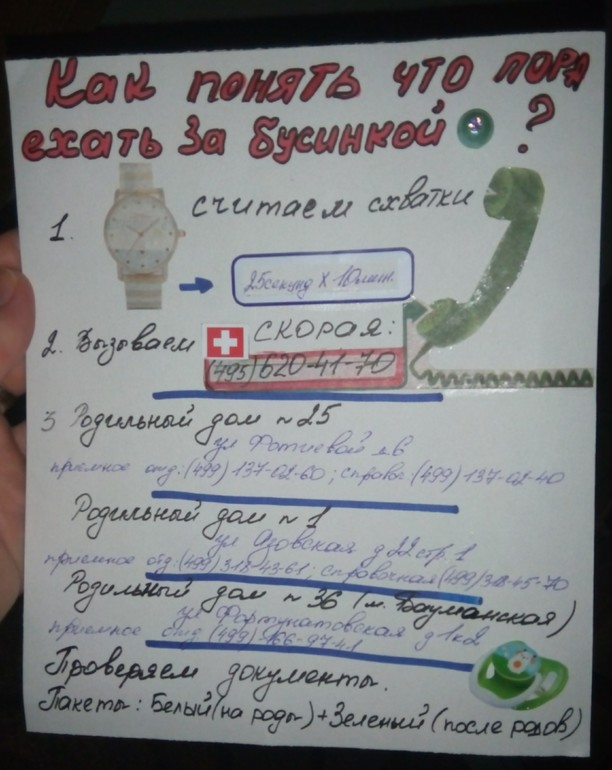 Как понять что пора
ехать за бусинкой ?
1. считаем схватки
25секунд х 10мин.
2. Вызываем СКОРАЯ:
(495) 620-41-70
3 Родильный дом №25
ул Фотиевой д6
приемное отд.: (499) 137-02-60 ; справоч (499) 137-02-40
Родильный дом №1
ул Азовская д 22 стр. 1
приемное отд: (499) 318-43-61; справочная (499) 318-45-70
Родильный дом №36 (м. Бауманская)
ул Фортунатовская д 1 к2
приемное отд (499) 166-97-41
Проверяем документы.
Пакеты: Белый (на роды) + Зеленый (после родов)